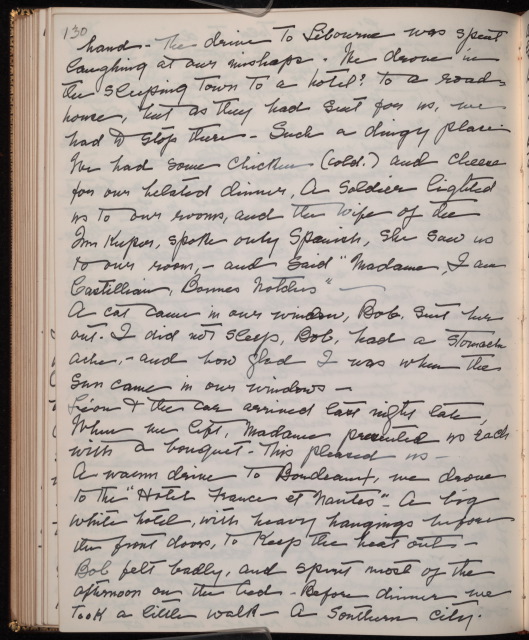 130
hand - The drive to Libourne was spent
laughing at our mishaps. We drove in
the sleeping town to a hotel? to a road=
house, but as they had sent for us, we
had to stop there - Such a dingy place
We had some chicken (cold.) and cheese
for our belated dinner, A soldier lighted
us to our rooms, and the wife of the
Inn Keeper, spoke only Spanish, she saw us
to our room, - and said "Madame, I am
Castillian, Bonnes
A cat came in our window, Bob, sent her
out. I did not sleep, Bob, had a stomach
ache, - and how glad I was when the
Sun came in our windows -
Léon & the car arrived last night late,
When we left, Madame presented us each
with a bouquet - This pleased us -
A warm drive to Bordeaux, we drove
to the "Hotel France et Nantes" - A big
white hotel, with heavy hangings before
the front doors, to keep the heat out -
Bob felt badly, and spent most of the
afternoon on the bed - Before dinner we
took a little walk - A Southern city.